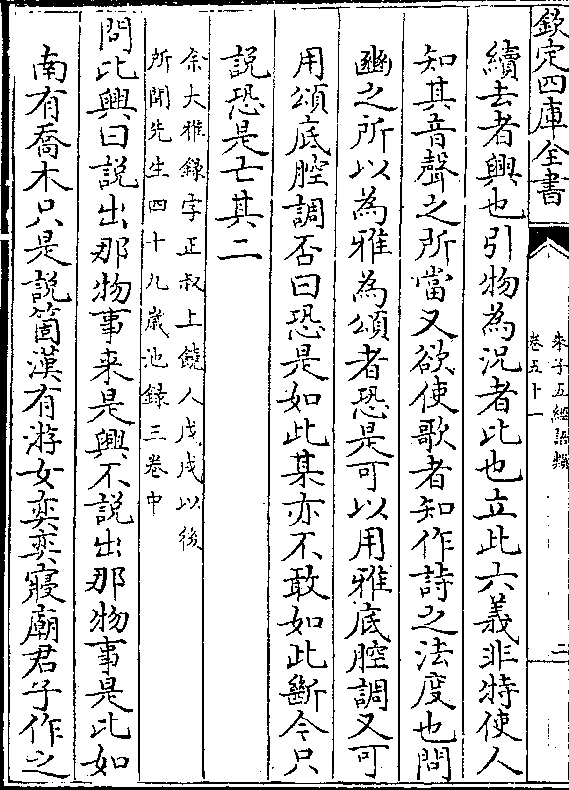 欽定四庫全書
朱子五經語類
卷五十一
三
續去者興也引物為況者比也立此六義非特使人
知其音聲之所當又欲使歌者知作詩之法度也問
豳之所以為雅為頌者恐是可以用雅底腔調又可
用頌底腔調否曰恐是如此某亦不敢如此斷今只
説恐是亡其二
余大雅録字正叔上饒人戊戌以後
所聞先生四十九歲池録三卷中
問比興曰説出那物事来是興不説出那物事是比如
南有喬木只是説箇漢有游女奕奕寢廟君子作之